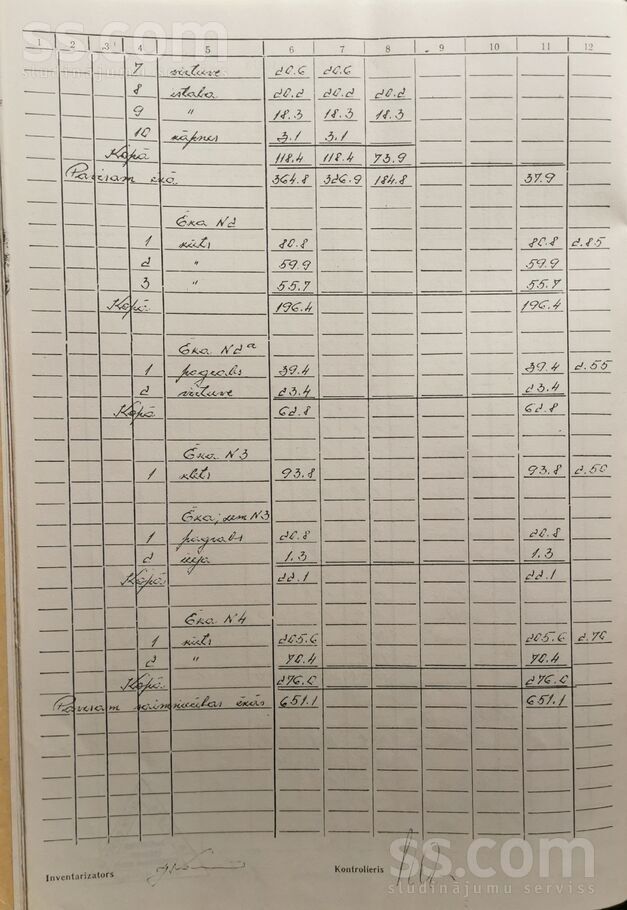 ss.com
sludinājumu serviss
1 2 3 4 5 6 7 8 9 10 11 12
7 virtuve 20.6 20.6
8 istaba 20.2 20.2 20.2
9 " 18.3 18.3 18.3
10 kāpnes 3.1 3.1
Kopā 118.4 118.4 73.9
Pavisam ēkā 364.8 326.9 184.8 37.9
Ēka N2
1 kūts 80.8 80.8 2.85
2 " 59.9 59.9
3 " 55.7 55.7
Kopā 196.4 196.4
Ēka N2a
1 pagrabs 39.4 39.4 2.55
2 virtuve 23.4 23.4
Kopā 62.8 62.8
Ēka N3
1 klēts 93.8 93.8 2.50
Ēka; zem N3
1 pagrabs 20.8 20.8
2 ieeja 1.3 1.3
Kopā 22.1 22.1
Ēka N4
1 kūts 205.6 205.6 2.70
2 " 70.4 70.4
Kopā 276.0 276.0
Pavisam saimniecības ēkās 651.1 651.1
Inventarizators Kontrolieris
ss.com
sludinājumu serviss